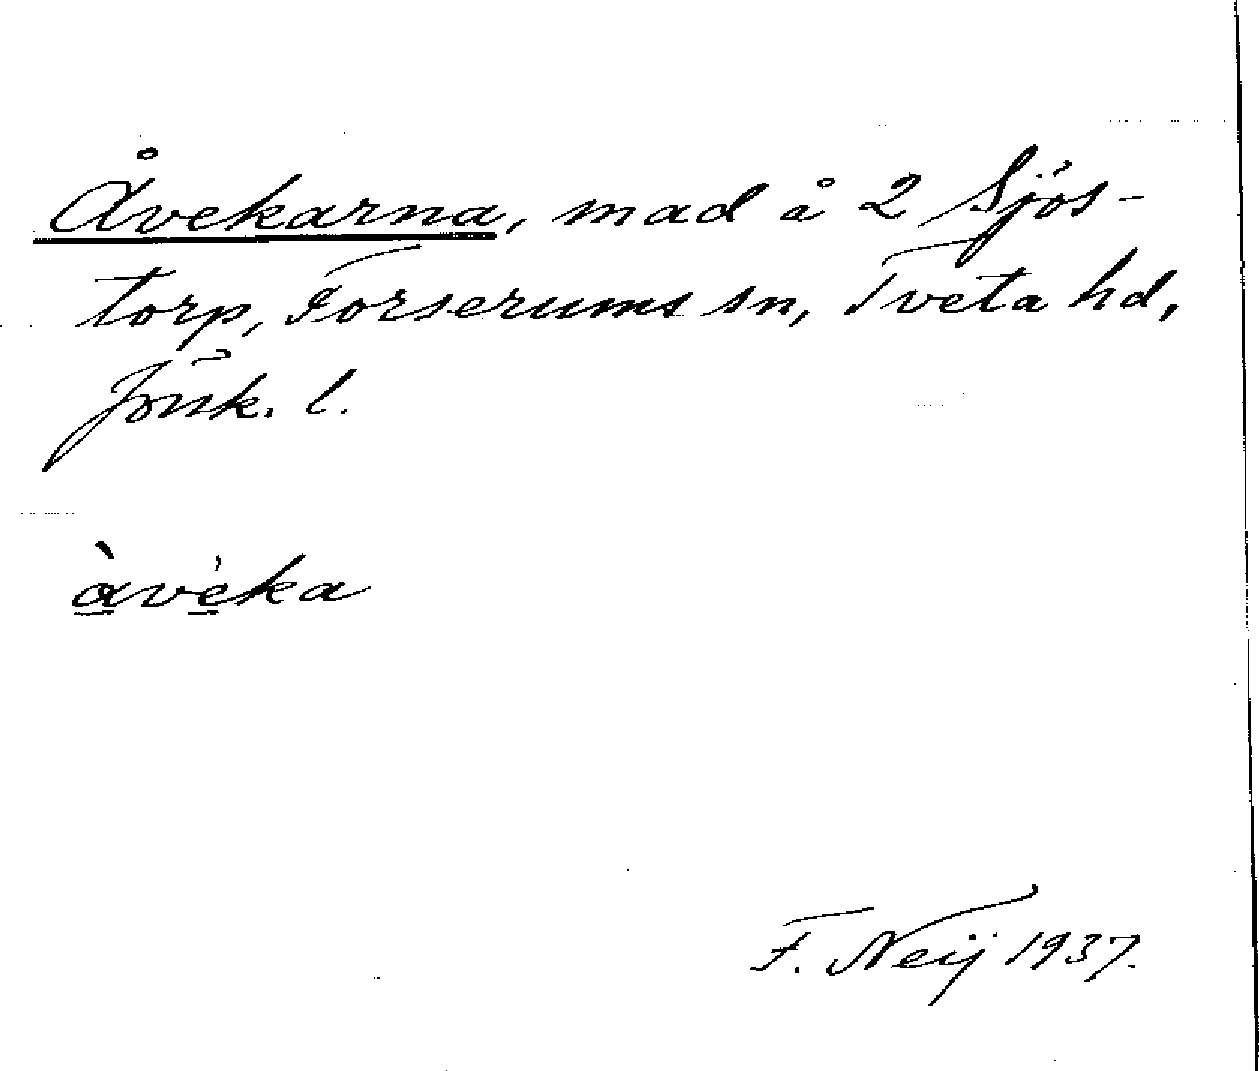 Åvekarna, mad å 2 Sjös-
torp, Forserums sn, Tveta hd,
Jönk. l.
àvéka
F. Neij 1937.